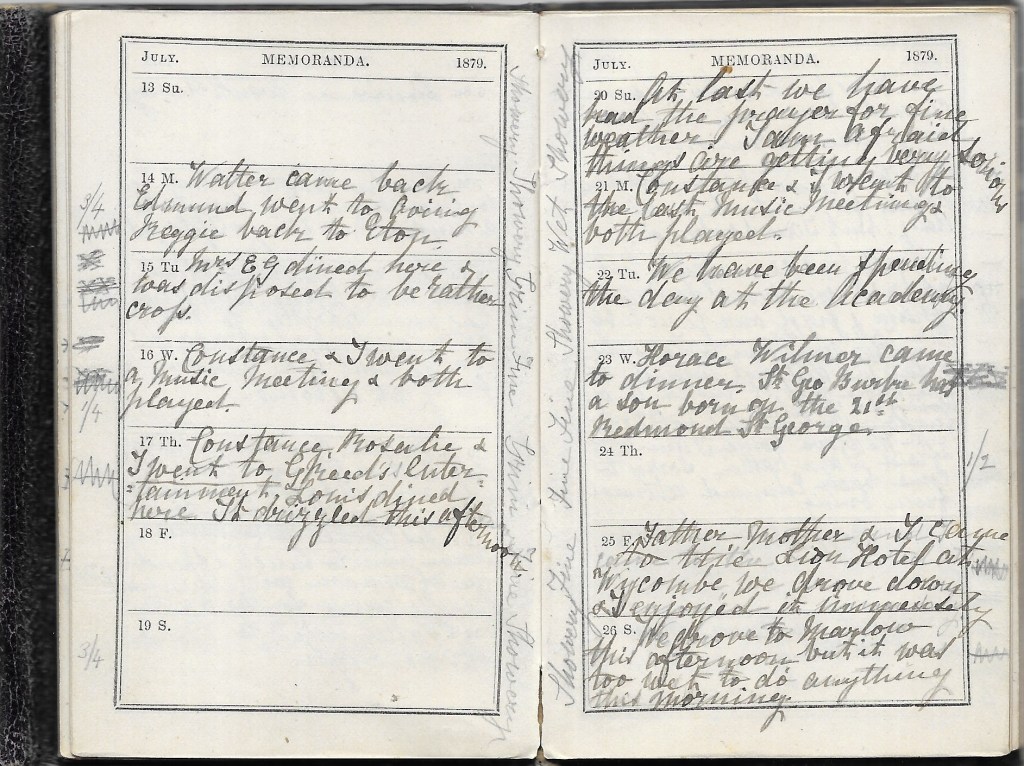 JULY. MEMORANDA. 1879.
13 Su.
14 M. Walter came back
Edmund went to
Reggie back to Eton.
15 Tu Mrs E G dined here &
was disposed to be rather
cross.
16 W. Constance & I went to
a Music Meeting & both
played.
17 Th. Constance, Rosalie &
I went to Enter-
=tainment, Louis dined
here It drizzled this afternoon
18 F.
19 S.
3/4
1/4
3/4
Showery Showery Grim Fine Showery
JULY. MEMORANDA. 1879.
20 Su. At last we have
had the prayer for fine
weather I am afraid
things are getting very serious
21 M. Constance & I went to
the last Music Meeting &
both played.
22 Tu. We have been spending
the day at the Academy.
23 W. Horace Wilmer came
to dinner. St Geo Burke has
a son born on the 21st
Redmond St George.
24 Th.
25 F. Father Mother & I came
to the Lion Hotel at
Wycombe, we drove down
& I enjoyed it immensely
26 S. We drove to Marlow
this afternoon but it was
too wet to do anything
this morning.
1/2
Showery Fine Fine Fine Showery Wet Showery